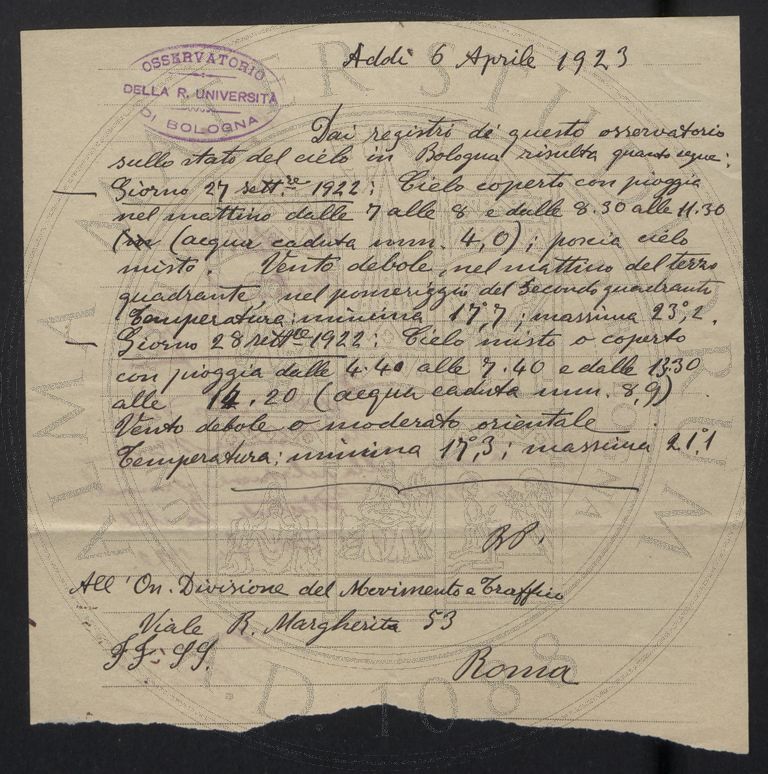 OSSERVATORIO
DELLA R. UNIVERSITÀ
DI BOLOGNA
Addì 6 Aprile 1923
Dai registri di questo osservatorio
sullo stato del cielo in Bologna risulta quanto segue:
Giorno 27 settre 1922: Cielo coperto con pioggia
nel mattino dalle 7 alle 8 e dalle 8.30 alle 11.30
(acqua caduta mm. 4,0); poscia cielo
misto. Vento debole, nel mattino del terzo
quadrante, nel pomeriggio del secondo quadrante
Temperatura: minima 17°,7; massima 23°,2.
Giorno 28 settre 1922: Cielo misto o coperto
con pioggia dalle 4.40 alle 7.40 e dalle 13.30
alle 14.20 (acqua caduta mm. 8,9).
Vento debole o moderato orientale.
Temperatura: minima 17°,3; massima 21°,1
All'On. Divisione del Movimento e Traffico
Viale R. Margherita 53
FF. SS.
Roma
ALMA MATER STUDIORUM
A.D. 1088